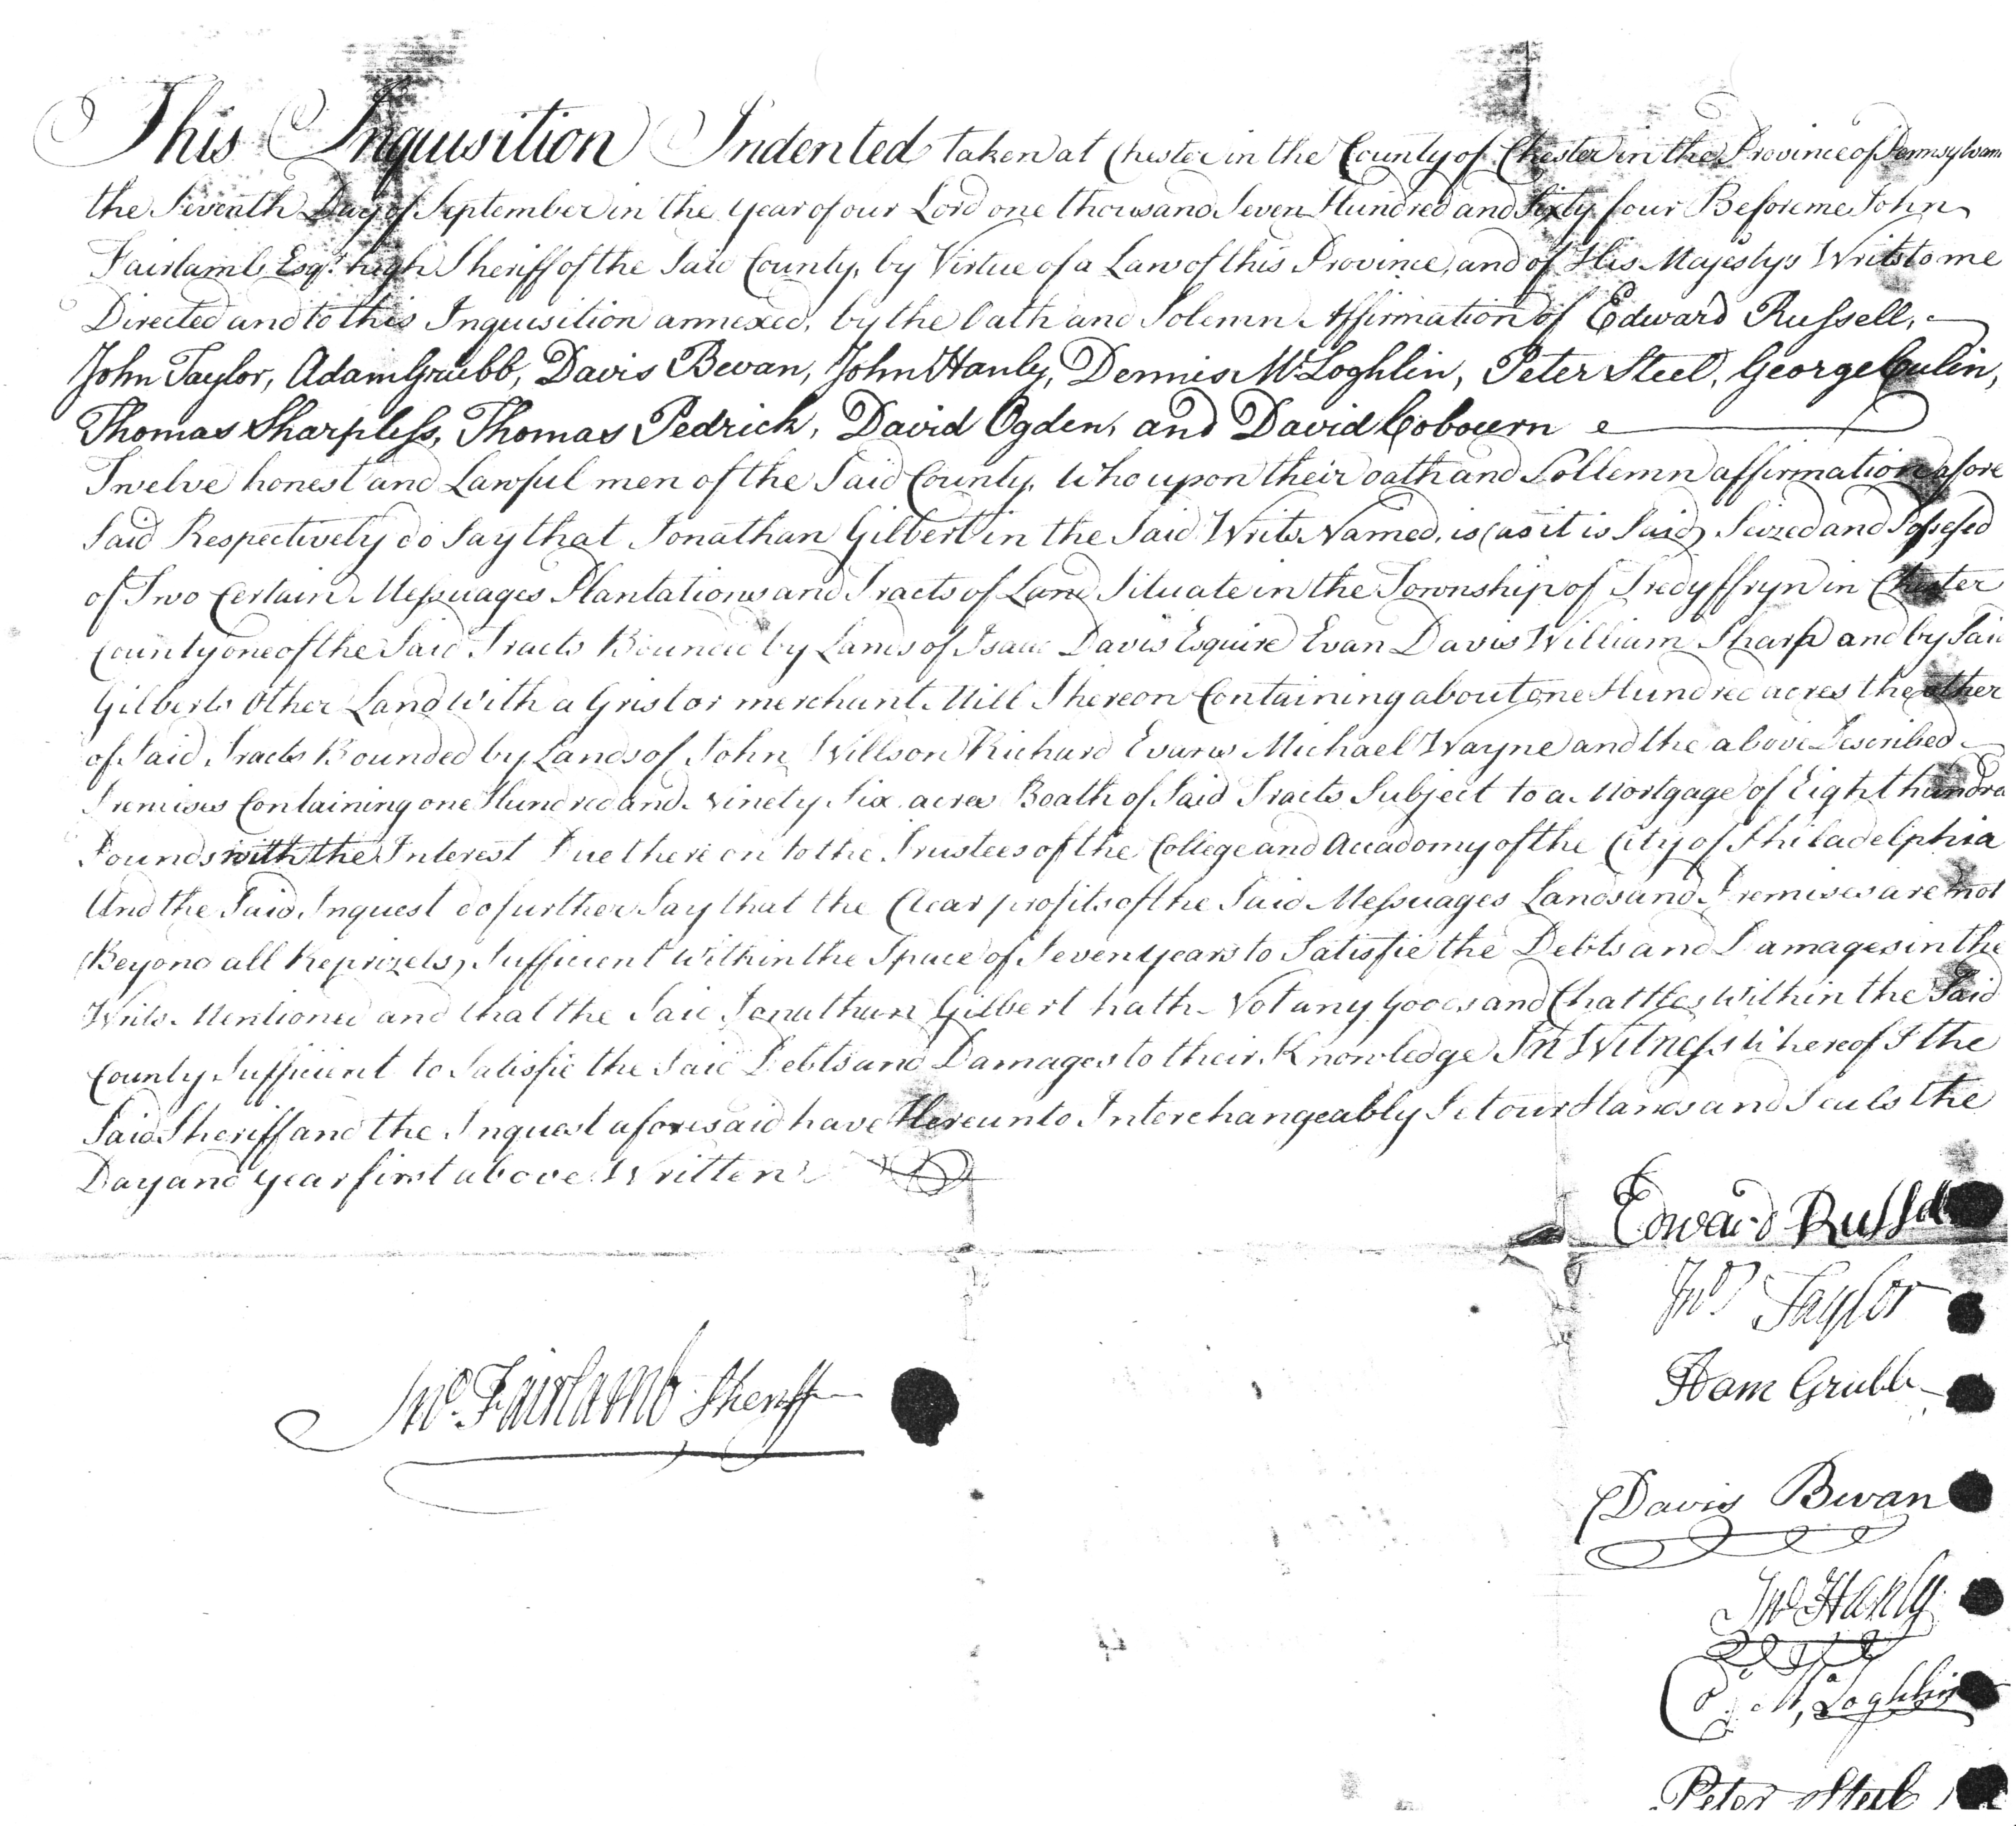 This Inquisition Indented taken at Chester in the County of Chester in the Province of Pennsylvan
the Seventh Day of September in the year of our Lord one thousand Seven Hundred and Sixty four Before me John
Fairlamb Esqr. high Sheriff of the Said County, by Virtue of a Law of this Province, and of His Majestys Writs to me
Directed and to this Inquisition annexed, by the Oath and Solemn Affirmation of Edward Russell,
John Taylor, Adam Grubb, Davis Bevan, John Hanly, Dennis McLoghlin, Peter Steel, George Culin,
Thomas Sharpless, Thomas Pedrick, David Ogden, and David Cobourn
Twelve honest and Lawful men of the Said County, Who upon their oath and Sollemn affirmation afore
Said Respectively do Say that Jonathan Gilbert in the Said Writs Named, is (as it is Said) Seized and Possesed
of Two Certain Messuages Plantations and Tracts of Land Situate in the Township of Tredyffryn in Chester
County one of the Said Tracts Bounded by Lands of Isaac Davis Esquire Evan Davis William Sharp and by Said
Gilberts Other Land With a Grist or merchant Mill Thereon Containing about one Hundred acres the other
of Said Tracts Bounded by Lands of John Willson Richard Evans Michael Wayne and the above Described
Premises Containing one Hundred and Ninety Six acres Boath of Said Tracts Subject to a Mortgage of Eight hundred
Pounds with the Interest Due there on to the Trustees of the College and Accadomy of the City of Philadelphia
And the Said Inquest do further Say that the Clear profits of the Said Messuages Lands and Premises are not
(Beyond all Reprizels) Sufficient Within the Space of Seven years to Satisfie the Debts and Damages in the
Writs Mentioned and that the Said Jonathan Gilbert hath Not any Goods and Chattles Within the Said
County Sufficient to Satisfie the Said Debts and Damages to their Knowledge In Witness Whereof I the
Said Sheriff and the Inquest aforesaid have Hereunto Interchangeably Set our Hands and Seals the
Day and year first above Written
Edward Russell
Jno Taylor
Jno. Fairlamb Sheriff
Adam Grubb
Davis Bevan
Jno Hanly
D. McLoghlin
Peter Steel